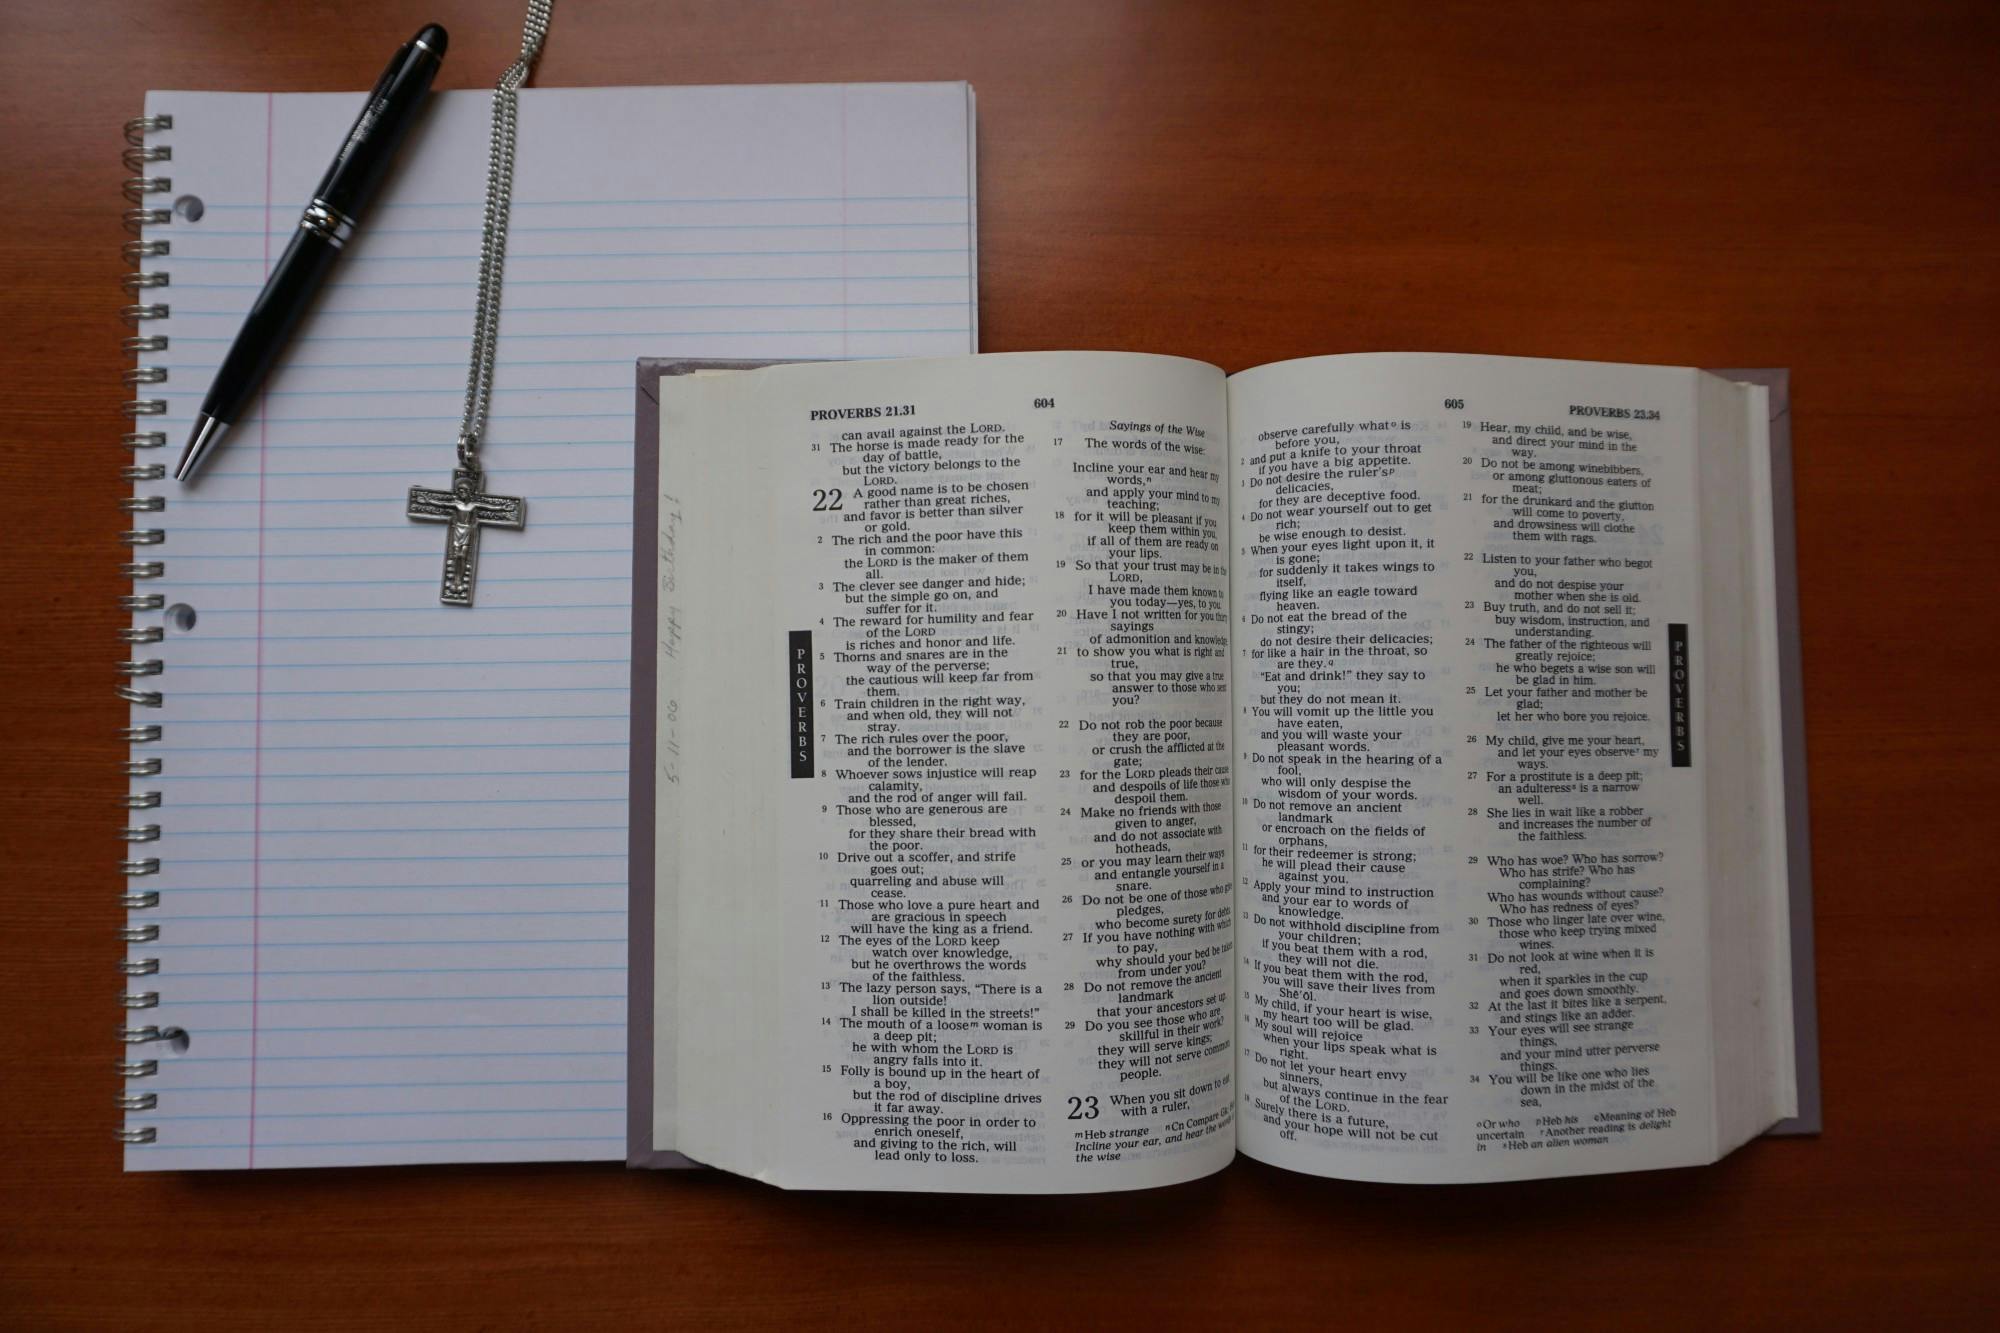 5-11-06 Happy Birthday!
PROVERBS 21.31
604
can avail against the LORD.
31 The horse is made ready for the
day of battle,
but the victory belongs to the
LORD.
22 A good name is to be chosen
rather than great riches,
and favor is better than silver
or gold.
2 The rich and the poor have this
in common:
the LORD is the maker of them
all.
3 The clever see danger and hide;
but the simple go on, and
suffer for it.
4 The reward for humility and fear
of the LORD
is riches and honor and life.
5 Thorns and snares are in the
way of the perverse;
the cautious will keep far from
them.
6 Train children in the right way,
and when old, they will not
stray.
7 The rich rules over the poor,
and the borrower is the slave
of the lender.
8 Whoever sows injustice will reap
calamity,
and the rod of anger will fail.
9 Those who are generous are
blessed,
for they share their bread with
the poor.
10 Drive out a scoffer, and strife
goes out;
quarreling and abuse will
cease.
11 Those who love a pure heart and
are gracious in speech
will have the king as a friend.
12 The eyes of the LORD keep
watch over knowledge,
but he overthrows the words
of the faithless.
13 The lazy person says, “There is a
lion outside!
I shall be killed in the streets!”
14 The mouth of a loose m woman is
a deep pit;
he with whom the LORD is
angry falls into it.
15 Folly is bound up in the heart of
a boy,
but the rod of discipline drives
it far away.
16 Oppressing the poor in order to
enrich oneself,
and giving to the rich, will
lead only to loss.
PROVERBS
Sayings of the Wise
17 The words of the wise:
Incline your ear and hear my
words, n
and apply your mind to my
teaching;
18 for it will be pleasant if you
keep them within you,
if all of them are ready on
your lips.
19 So that your trust may be in the
LORD,
I have made them known to
you today—yes, to you.
20 Have I not written for you thirty
sayings
of admonition and knowledge,
21 to show you what is right and
true,
so that you may give a true
answer to those who sent
you?
22 Do not rob the poor because
they are poor,
or crush the afflicted at the
gate;
23 for the LORD pleads their cause
and despoils of life those who
despoil them.
24 Make no friends with those
given to anger,
and do not associate with
hotheads,
25 or you may learn their ways
and entangle yourself in a
snare.
26 Do not be one of those who give
pledges,
who become surety for debts.
27 If you have nothing with which
to pay,
why should your bed be taken
from under you?
28 Do not remove the ancient
landmark
that your ancestors set up.
29 Do you see those who are
skillful in their work?
they will serve kings;
they will not serve common
people.
23 When you sit down to eat
with a ruler,
m Heb strange n Cn Compare Gk:
Incline your ear, and hear the words of
the wise
605
PROVERBS 23.34
observe carefully what o is
before you,
2 and put a knife to your throat
if you have a big appetite.
3 Do not desire the ruler's p
delicacies,
for they are deceptive food.
4 Do not wear yourself out to get
rich;
be wise enough to desist.
5 When your eyes light upon it, it
is gone;
for suddenly it takes wings to
itself,
flying like an eagle toward
heaven.
6 Do not eat the bread of the
stingy;
do not desire their delicacies;
7 for like a hair in the throat, so
are they. q
“Eat and drink!” they say to
you;
but they do not mean it.
8 You will vomit up the little you
have eaten,
and you will waste your
pleasant words.
9 Do not speak in the hearing of a
fool,
who will only despise the
wisdom of your words.
10 Do not remove an ancient
landmark
or encroach on the fields of
orphans,
11 for their redeemer is strong;
he will plead their cause
against you.
12 Apply your mind to instruction
and your ear to words of
knowledge.
13 Do not withhold discipline from
your children;
if you beat them with a rod,
they will not die.
14 If you beat them with the rod,
you will save their lives from
She'ol.
15 My child, if your heart is wise,
my heart too will be glad.
16 My soul will rejoice
when your lips speak what is
right.
17 Do not let your heart envy
sinners,
but always continue in the fear
of the LORD.
18 Surely there is a future,
and your hope will not be cut
off.
19 Hear, my child, and be wise,
and direct your mind in the
way.
20 Do not be among winebibbers,
or among gluttonous eaters of
meat;
21 for the drunkard and the glutton
will come to poverty,
and drowsiness will clothe
them with rags.
22 Listen to your father who begot
you,
and do not despise your
mother when she is old.
23 Buy truth, and do not sell it;
buy wisdom, instruction, and
understanding.
24 The father of the righteous will
greatly rejoice;
he who begets a wise son will
be glad in him.
25 Let your father and mother be
glad;
let her who bore you rejoice.
26 My child, give me your heart,
and let your eyes observe r my
ways.
27 For a prostitute is a deep pit;
an adulteress s is a narrow
well.
28 She lies in wait like a robber
and increases the number of
the faithless.
29 Who has woe? Who has sorrow?
Who has strife? Who has
complaining?
Who has wounds without cause?
Who has redness of eyes?
30 Those who linger late over wine,
those who keep trying mixed
wines.
31 Do not look at wine when it is
red,
when it sparkles in the cup
and goes down smoothly.
32 At the last it bites like a serpent,
and stings like an adder.
33 Your eyes will see strange
things,
and your mind utter perverse
things.
34 You will be like one who lies
down in the midst of the
sea,
o Or who p Heb his q Meaning of Heb
uncertain r Another reading is delight
in s Heb an alien woman
PROVERBS